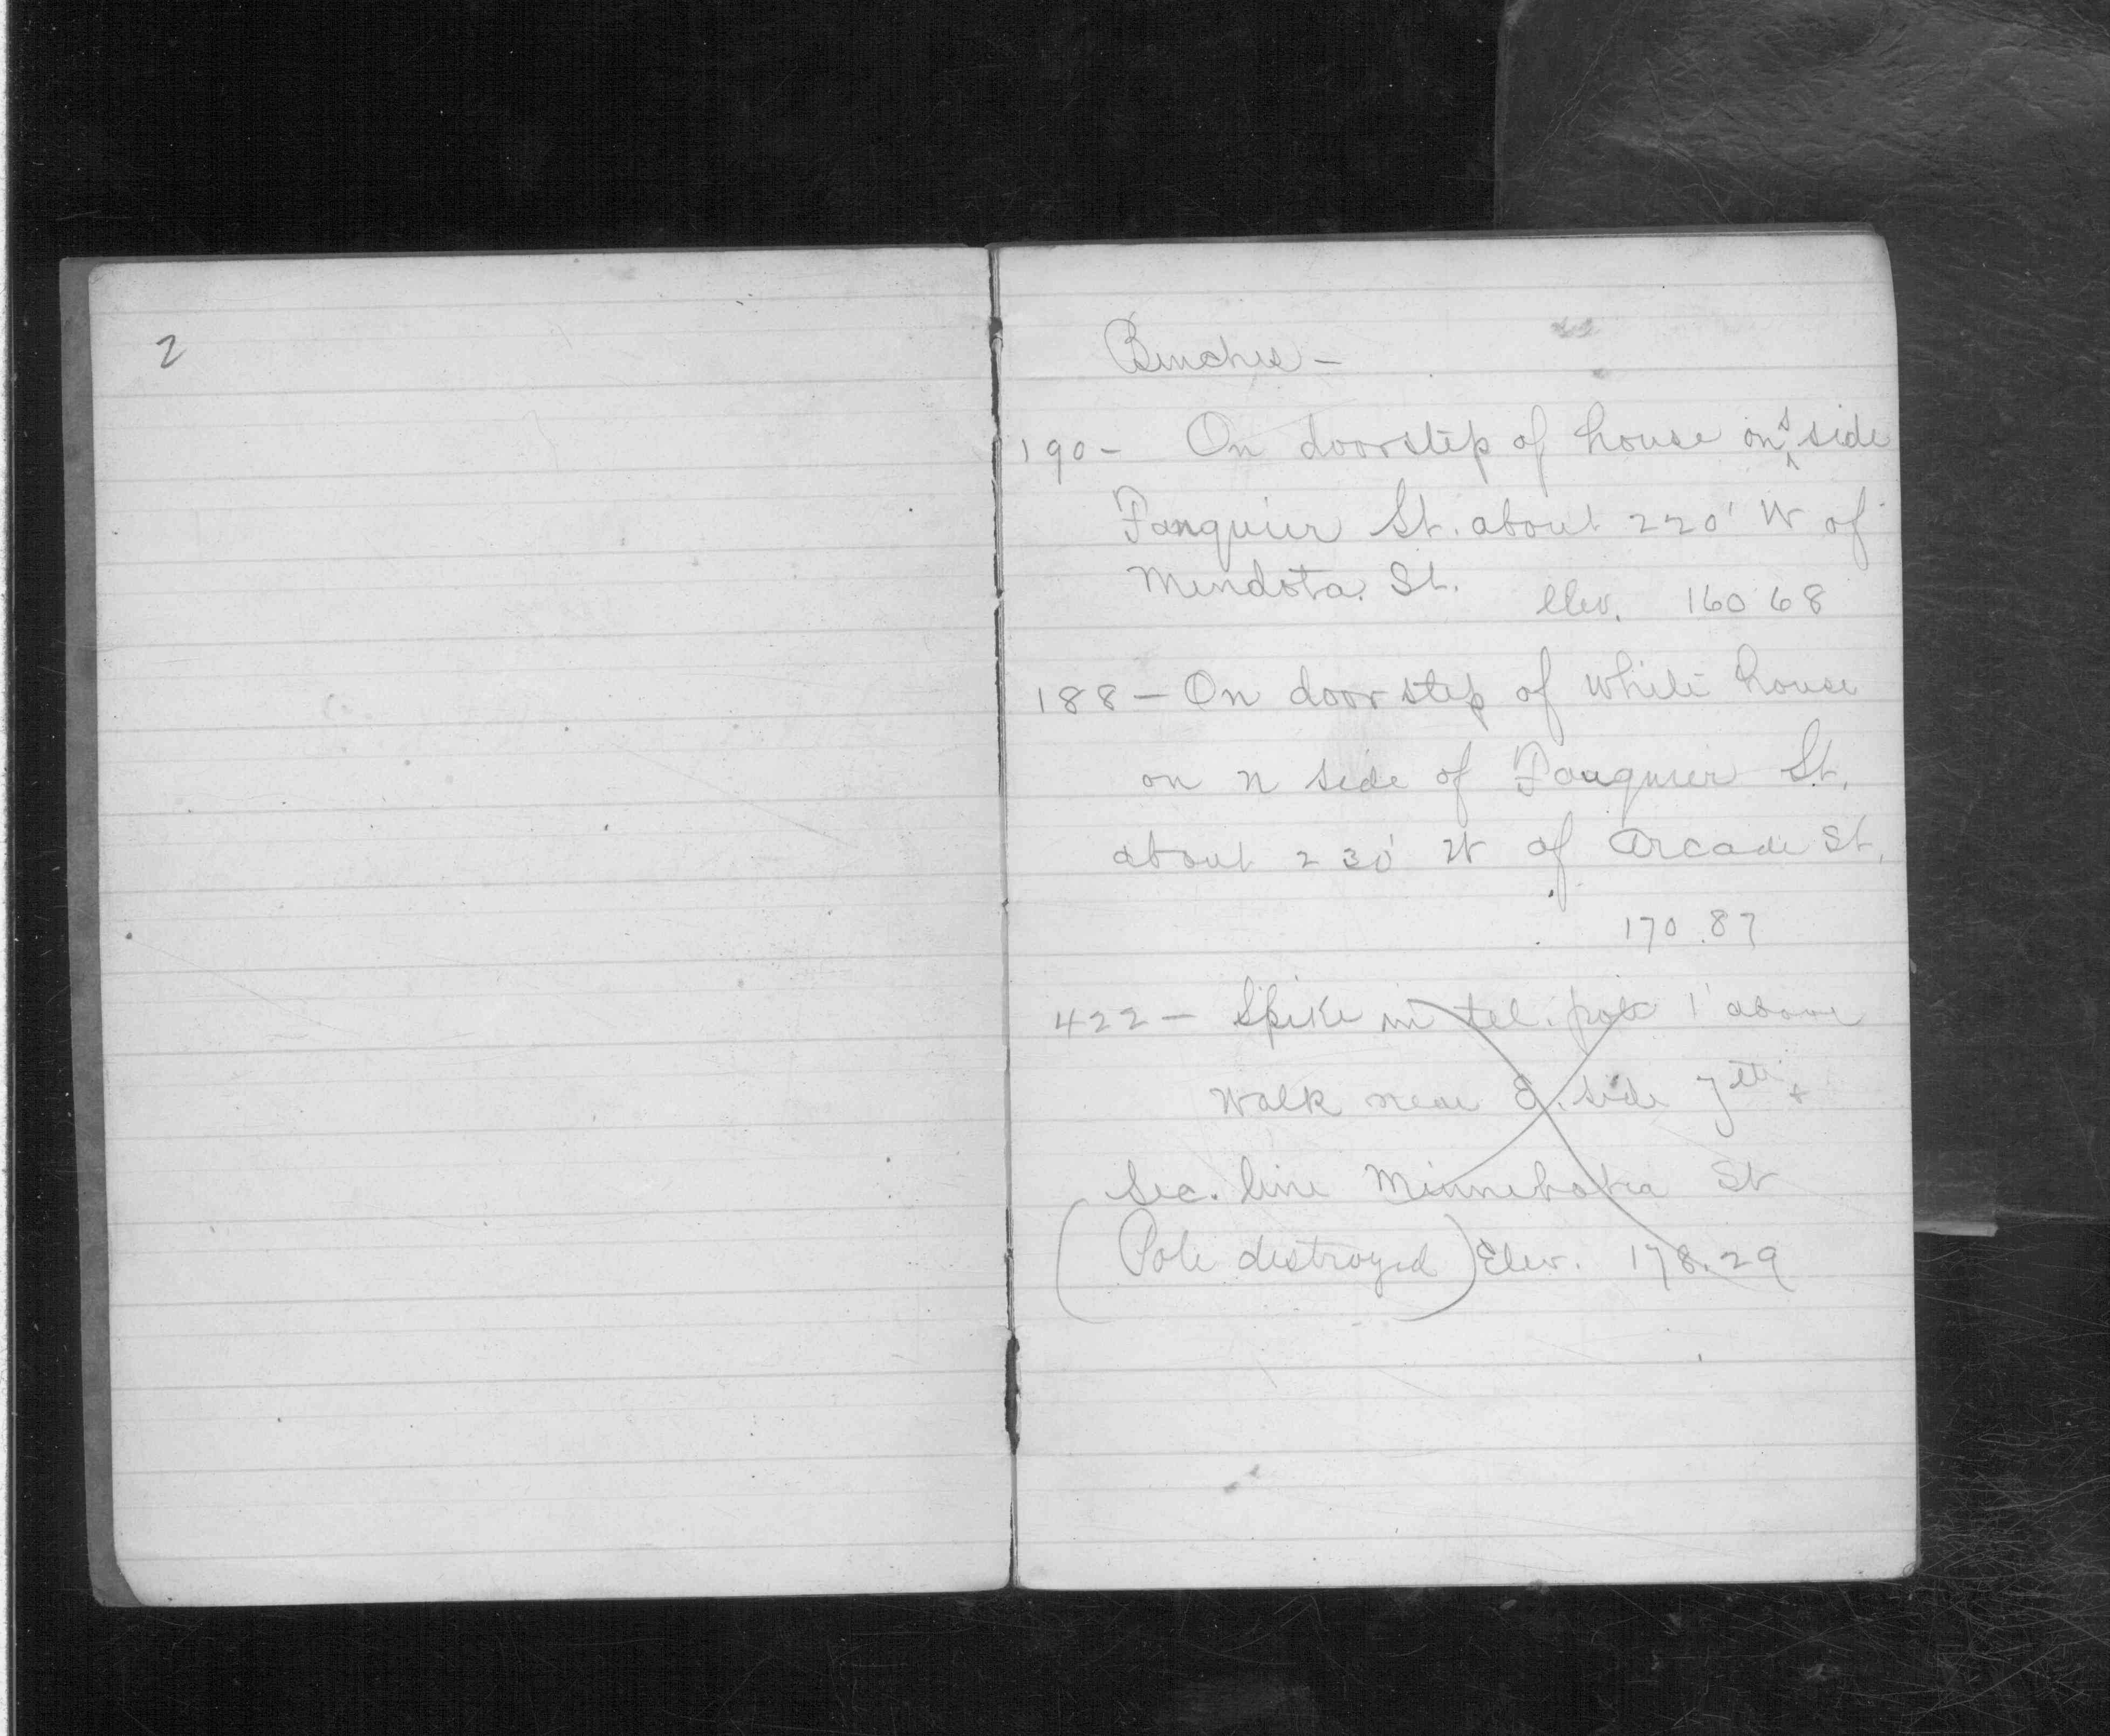 2
Benches -
190 - On doorstep of house on s side
Fauquier St. about 220' W of
Mendota St. Elev. 160 68
188 - On door step of white house
on N side of Fauquier St.
about 230' W of Arcade St.
170.87
422 - Spike in tel. pole 1' above
walk near E. side 7th +
Sec. line Minnehaha St
(Pole destroyed) Elev. 178.29